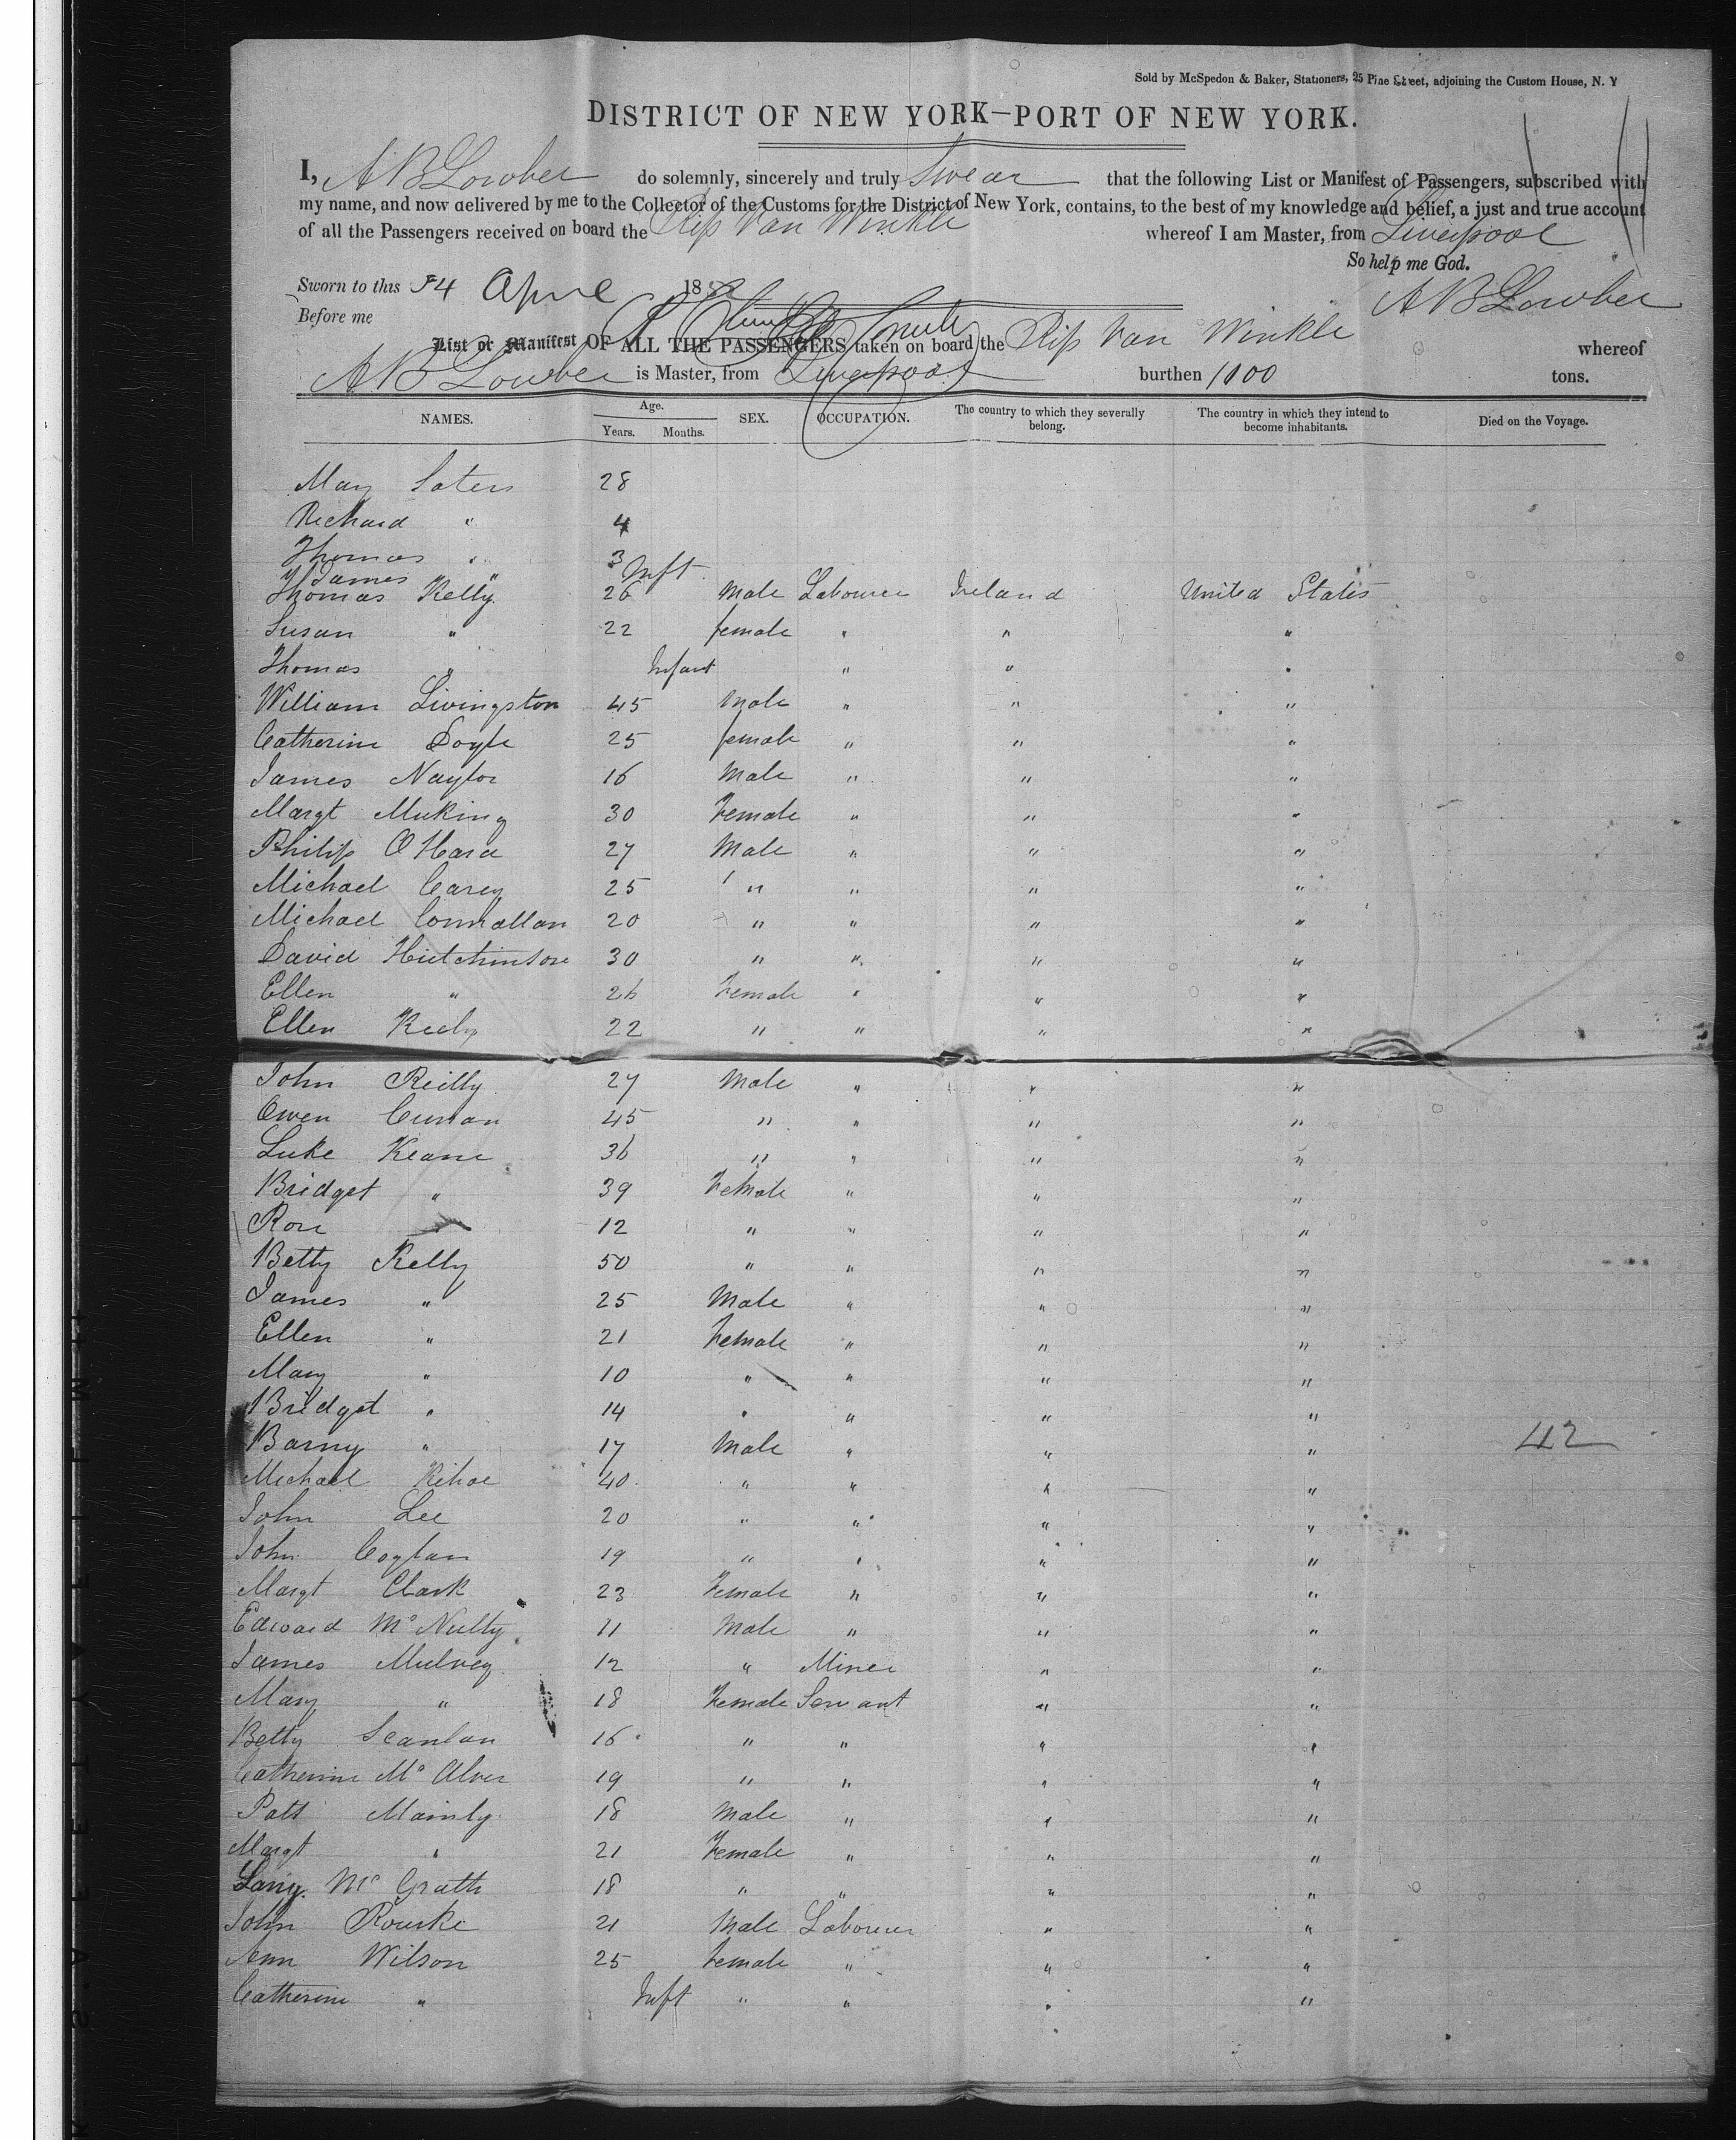 Sold by McSpedon & Baker, Stationers, 25 Pine Street, adjoining the Custom House, N. Y
DISTRICT OF NEW YORK—PORT OF NEW YORK.
I, A B Lowber do solemnly, sincerely and truly Swear that the following List or Manifest of Passengers, subscribed with
my name, and now delivered by me to the Collector of the Customs for the District of New York, contains, to the best of my knowledge and belief, a just and true account
of all the Passengers received on board the Rip Van Winkle whereof I am Master, from Liverpool
So help me God.
Sworn to this 4 April 18
A B Lowber
Before me
List or Manifest OF ALL THE PASSENGERS taken on board the Rip Van Winkle whereof
A B Lowber is Master, from Liverpool burthen 1100 tons.
NAMES. Age. Years. Months. SEX. OCCUPATION. The country to which they severally belong. The country in which they intend to become inhabitants. Died on the Voyage.
Mary Soters 28
Richard " 4
Thomas " 3
James " Inft
Thomas Kelly 26 Male Labourer Ireland United States
Susan " 22 female " " "
Thomas " Infant " " "
William Livingston 45 Male " " "
Catherine Doyle 25 female " " "
James Naylor 16 Male " " "
Margt Muking 30 Female " " "
Philip O Hara 27 Male " " "
Michael Carey 25 " " " "
Michael Connallan 20 " " " "
David Hutchinson 30 " " " "
Ellen " 26 Female " " "
Ellen 22 " " " "
John Reilly 27 Male " " "
Owen Curran 45 " " " "
Luke Keane 36 " " " "
Bridget " 39 Female " " "
Rose " 12 " " " "
Betty Kelly 50 " " " "
James " 25 Male " " "
Ellen " 21 Female " " "
Mary " 10 " " " "
Bridget " 14 " " " "
Barny " 17 Male " " " 42
Michael Kehoe 40 " " " "
John Lee 20 " " " "
John Coglan 19 " " " "
Margt Clark 23 Female " " "
Edward Mc Nulty 11 Male " " "
James Mulvey 12 " Miner " "
Mary " 18 Female Servant " "
Betty Scanlan 16 " " " "
Catherine Mc Alver 19 " " " "
Patt Mainly 18 Male " " "
Margt " 21 Female " " "
Mc Grath 18 " " " "
John Rourke 21 Male Labourer " "
Ann Wilson 25 Female " " "
Catherine " Inft " " " "